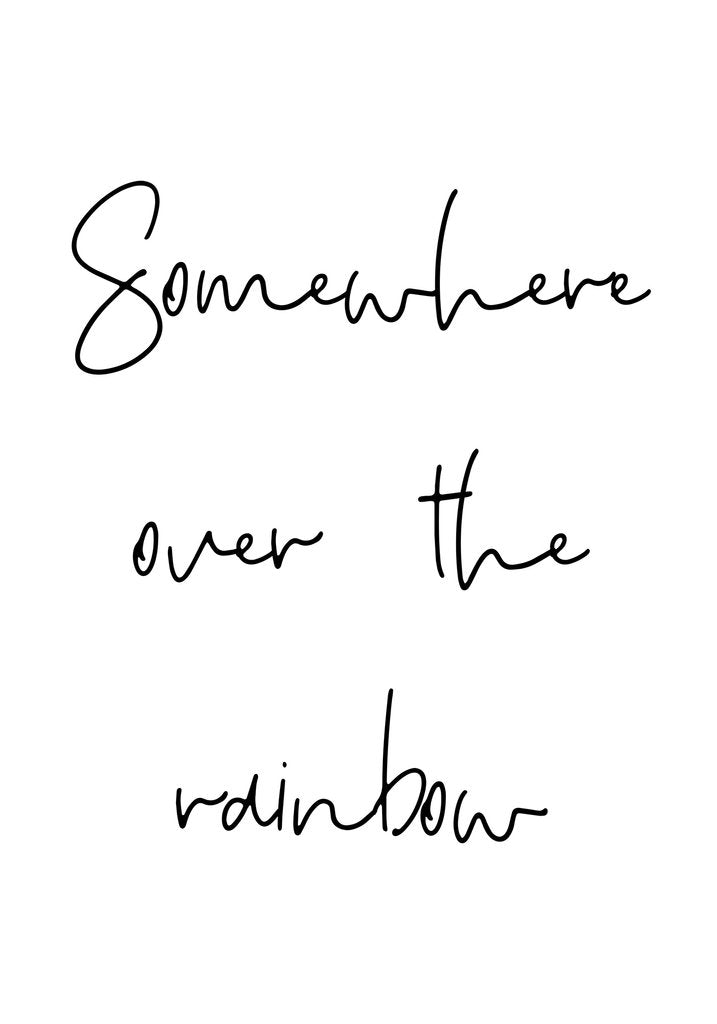 Somewhere
over the
rainbow